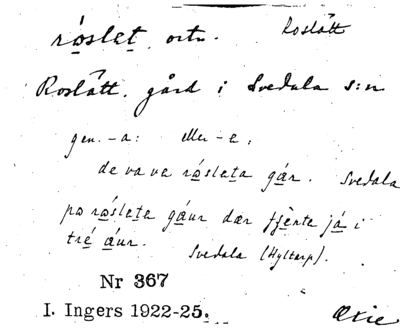 røslet, ortn. Roslätt
Roslätt, gård i Svedala s:n
gen. -a: eller -e:
de va va røsleta gár. Svedala
po røsleta gáur dær fjènte já i
tré áur. Svedala (Hyltarp).
Nr 367
I. Ingers 1922-25. Oxie